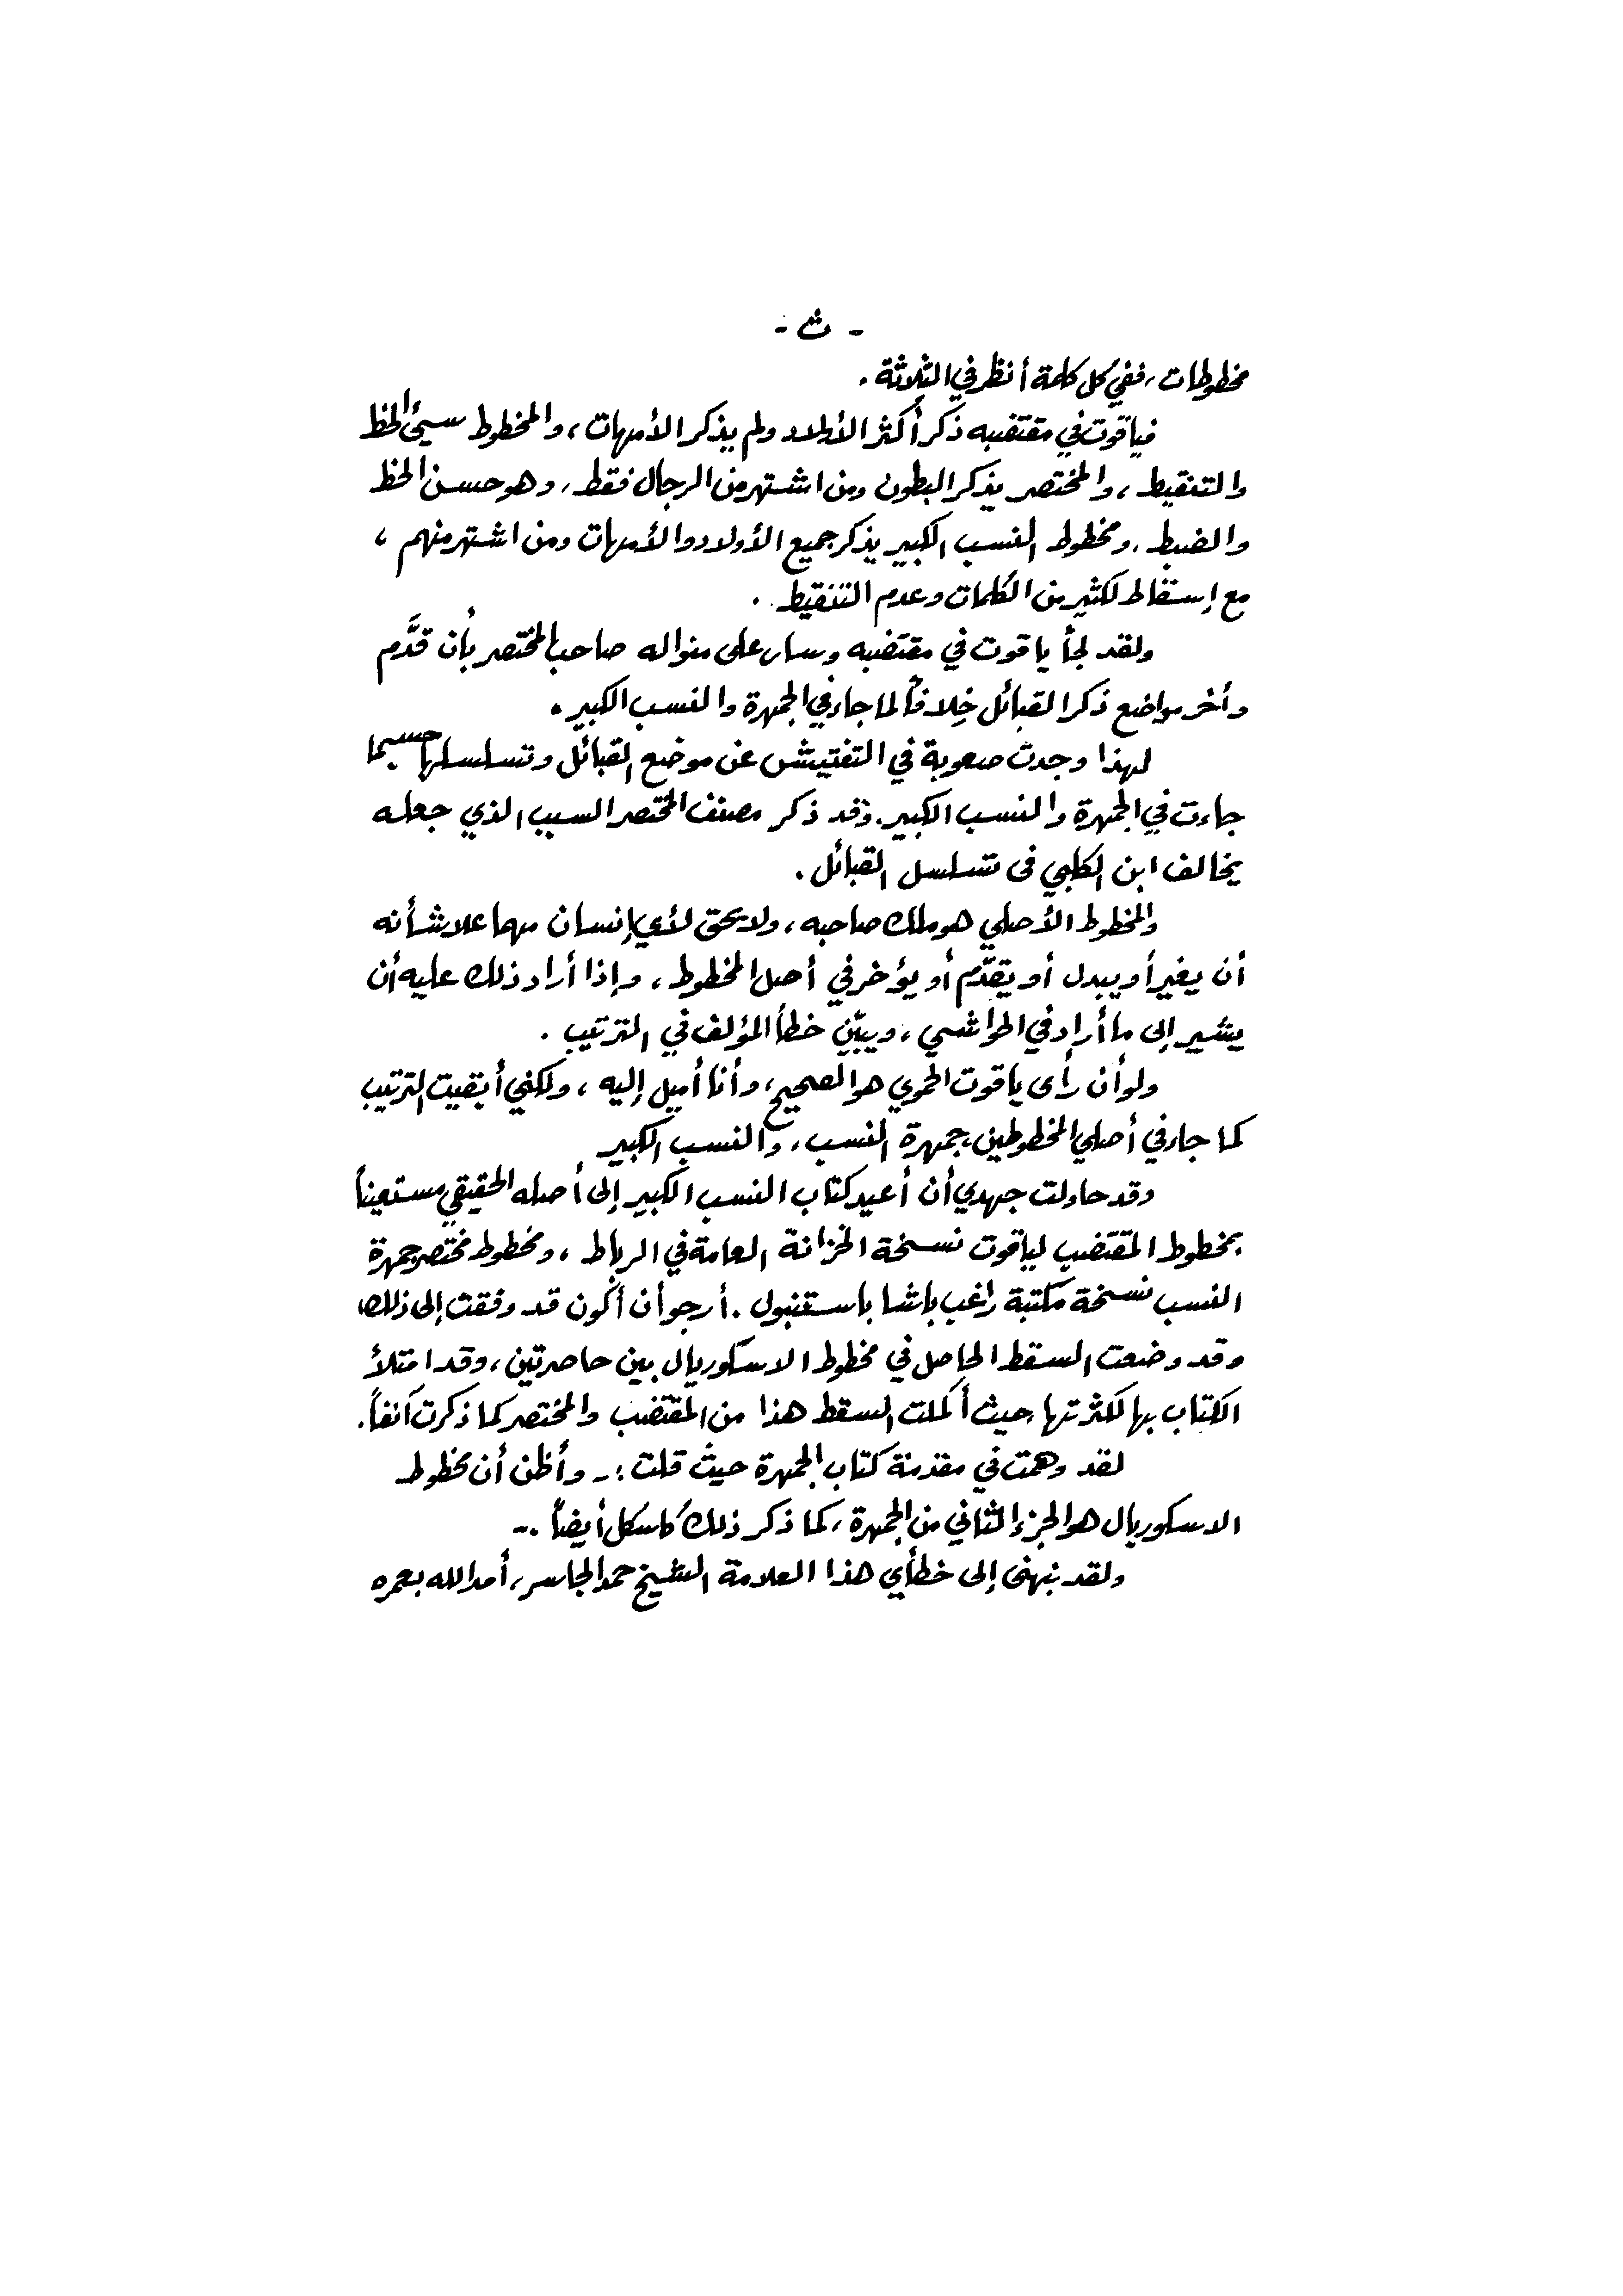 - ث -
مخطوطات، ففي كل كلمة أنظر في الثلاثة .
فياقوت في مقتضبه ذكر أكثر الأولاد ولم يذكر الأمهات، والمخطوط سيئ الخط
والتنقيط، والمختصر يذكر البطون ومن اشتهر من الرجال فقط، وهو حسن الخط
والضبط، ومخطوط النسب الكبير يذكر جميع الأولاد والأمهات ومن اشتهر منهم،
مع إسقاط لكثير من الكلمات وعدم التنقيط .
ولقد لجأ ياقوت في مقتضبه وسار على منواله صاحب المختصر بأن قدَّم
وأخر مواضع ذكر القبائل خلافاً لما جاء في الجمهرة والنسب الكبير .
لهذا وجدت صعوبة في التفتيش عن موضع القبائل وتسلسلها حسبما
جاءت في الجمهرة والنسب الكبير. وقد ذكر مصنف المختصر السبب الذي جعله
يخالف ابن الكلبي في تسلسل القبائل .
والمخطوط الأصلي هو ملك صاحبه، ولا يحق لأي إنسان مهما علا شأنه
أن يغير أو يبدل أو يقدّم أو يؤخر في أصل المخطوط، وإذا أراد ذلك عليه أن
يشير إلى ما أراد في الحواشي، ويبيّن خطأ المؤلف في الترتيب .
ولو أن رأى ياقوت الحموي هو الصحيح، وأنا أميل إليه، ولكني أبقيت الترتيب
كما جاء في أصلي المخطوطين، جمهرة النسب، والنسب الكبير
وقد حاولت جهدي أن أعيد كتاب النسب الكبير إلى أصله الحقيقي مستعيناً
بمخطوط المقتضب لياقوت نسخة الخزانة العامة في الرباط، ومخطوط مختصر جمهرة
النسب نسخة مكتبة راغب باشا باستنبول . أرجو أن أكون قد وفقت إلى ذلك،
وقد وضعت السقط الحاصل في مخطوط الاسكوريال بين حاصرتين، وقد امتلأ
الكتاب بها لكثرتها، حيث أكملت السقط هذا من المقتضب والمختصر كما ذكرت آنفاً .
لقد وهمت في مقدمة كتاب الجمهرة حيث قلت :- وأظن أن مخطوط
الاسكوريال هو الجزء الثاني من الجمهرة، كما ذكر ذلك كاسكل أيضاً .-
ولقد نبهني إلى خطأي هذا العلامة الشيخ حمد الجاسر، أمد الله بعمره